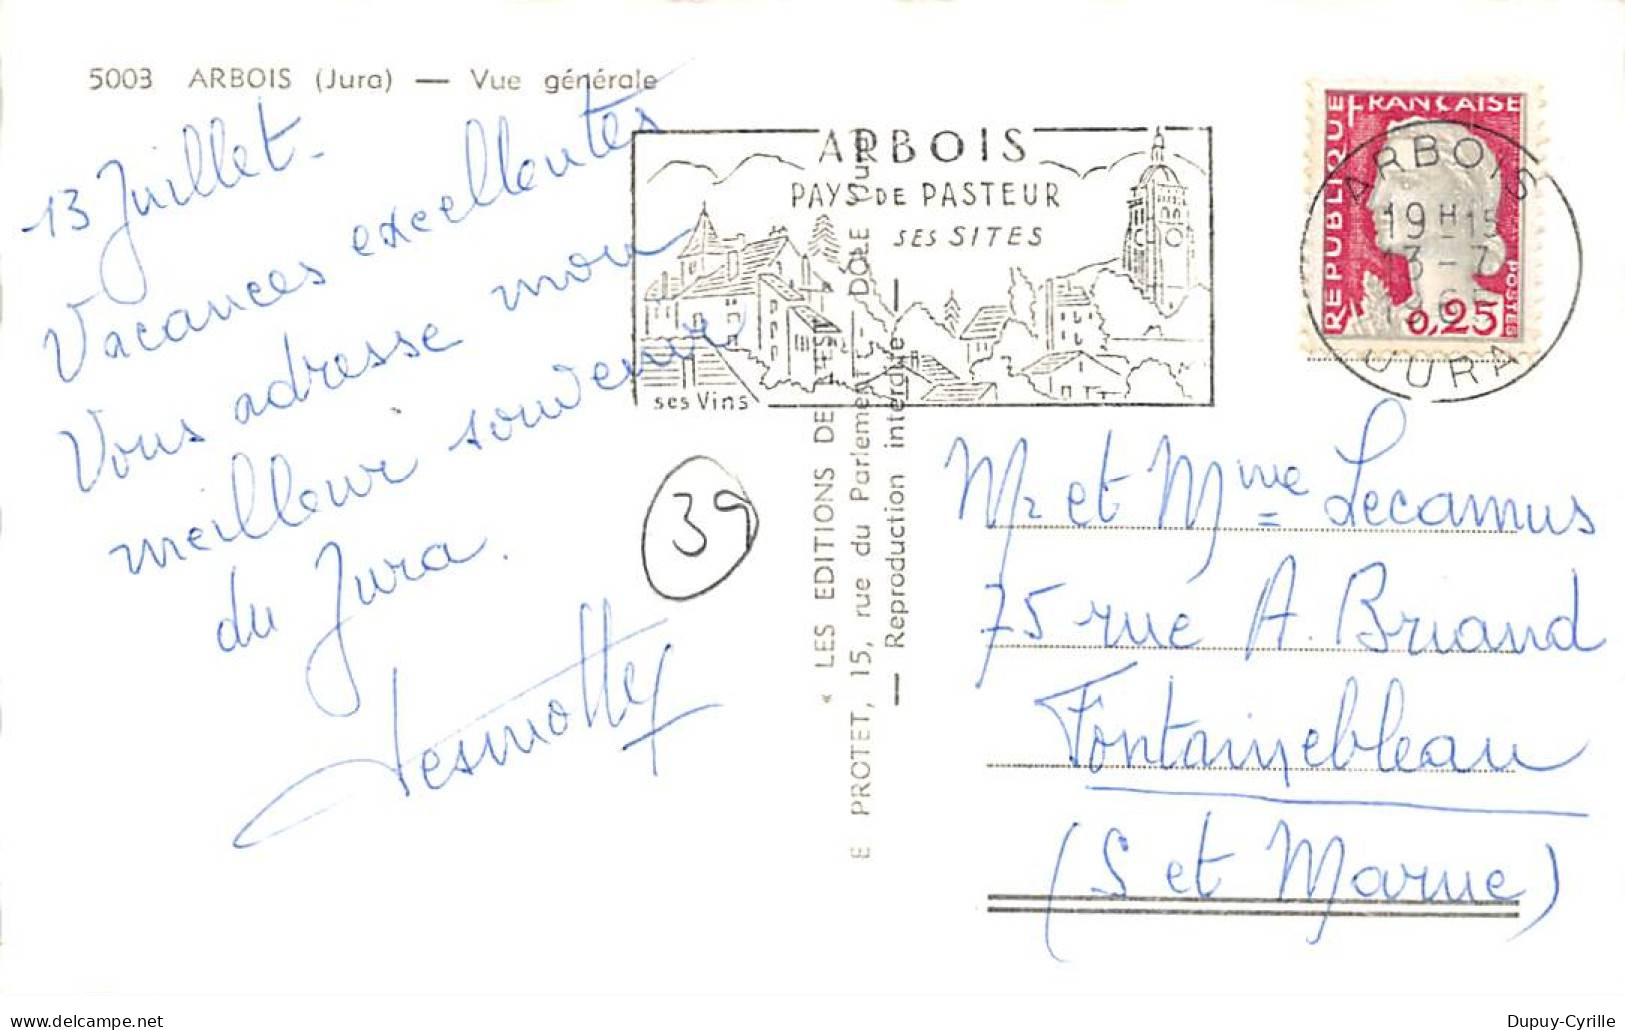 5003 ARBOIS (Jura) — Vue générale
13 Juillet -
Vacances excellentes
Vous adresse mon
meilleur souvenir
du Jura.
39
ARBOIS
PAYS DE PASTEUR
SES SITES
ses Vins
REPUBLIQUE FRANÇAISE
POSTES
0,25
ARBOIS
19 H 15
13 - 7
JURA
« LES EDITIONS DE L'EST »
E PROTET, 15, rue du Parlement - DOLE Jura
— Reproduction interdite —
Mr et Mme Lecamus
75 rue A. Briand
Fontainebleau
(S et Marne)
delcampe.net
Dupuy-Cyrille